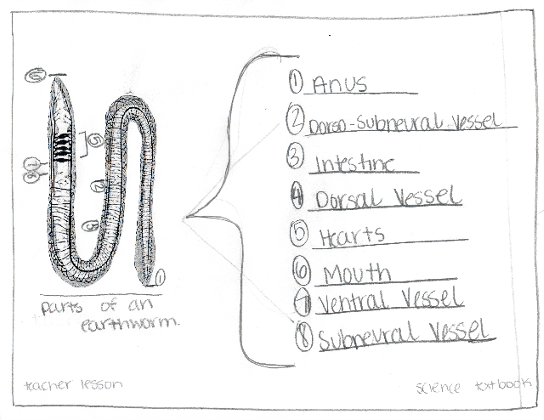 ① Anus
② Dorso-Subneural Vessel
③ Intestine
④ Dorsal Vessel
⑤ Hearts
⑥ Mouth
⑦ Ventral Vessel
⑧ Subneural Vessel
6
5
2
3
1
parts of an
earthworm.
teacher lesson
science textbook